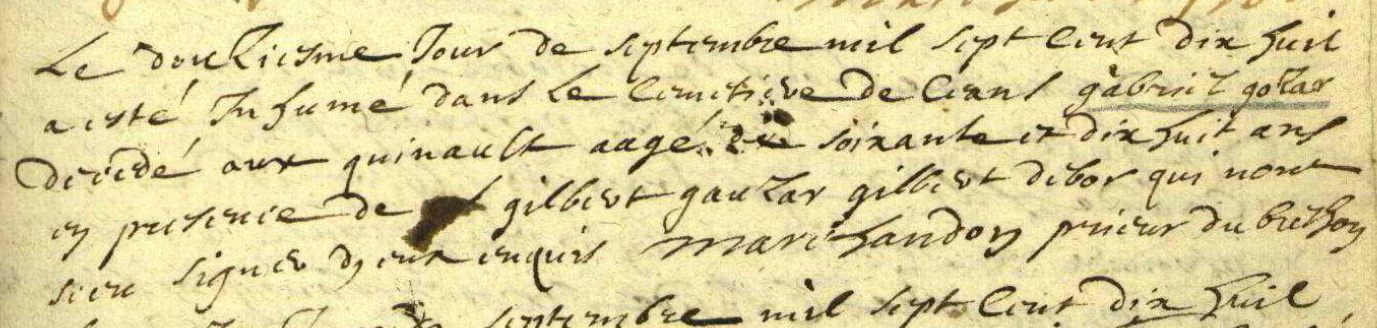 Le douziesme Jour de septembre mil sept Cent dix huit
a esté Inhumé dans Le Cimetiere de Ceans gabriel gozar
decedé aux quinault aagé de soixante et dix huit ans
en presence de gilbert gauzar gilbert debor qui nont
sceu signer d'eux enquis Marchandon prieur du brethon
septembre mil sept Cent dix huit